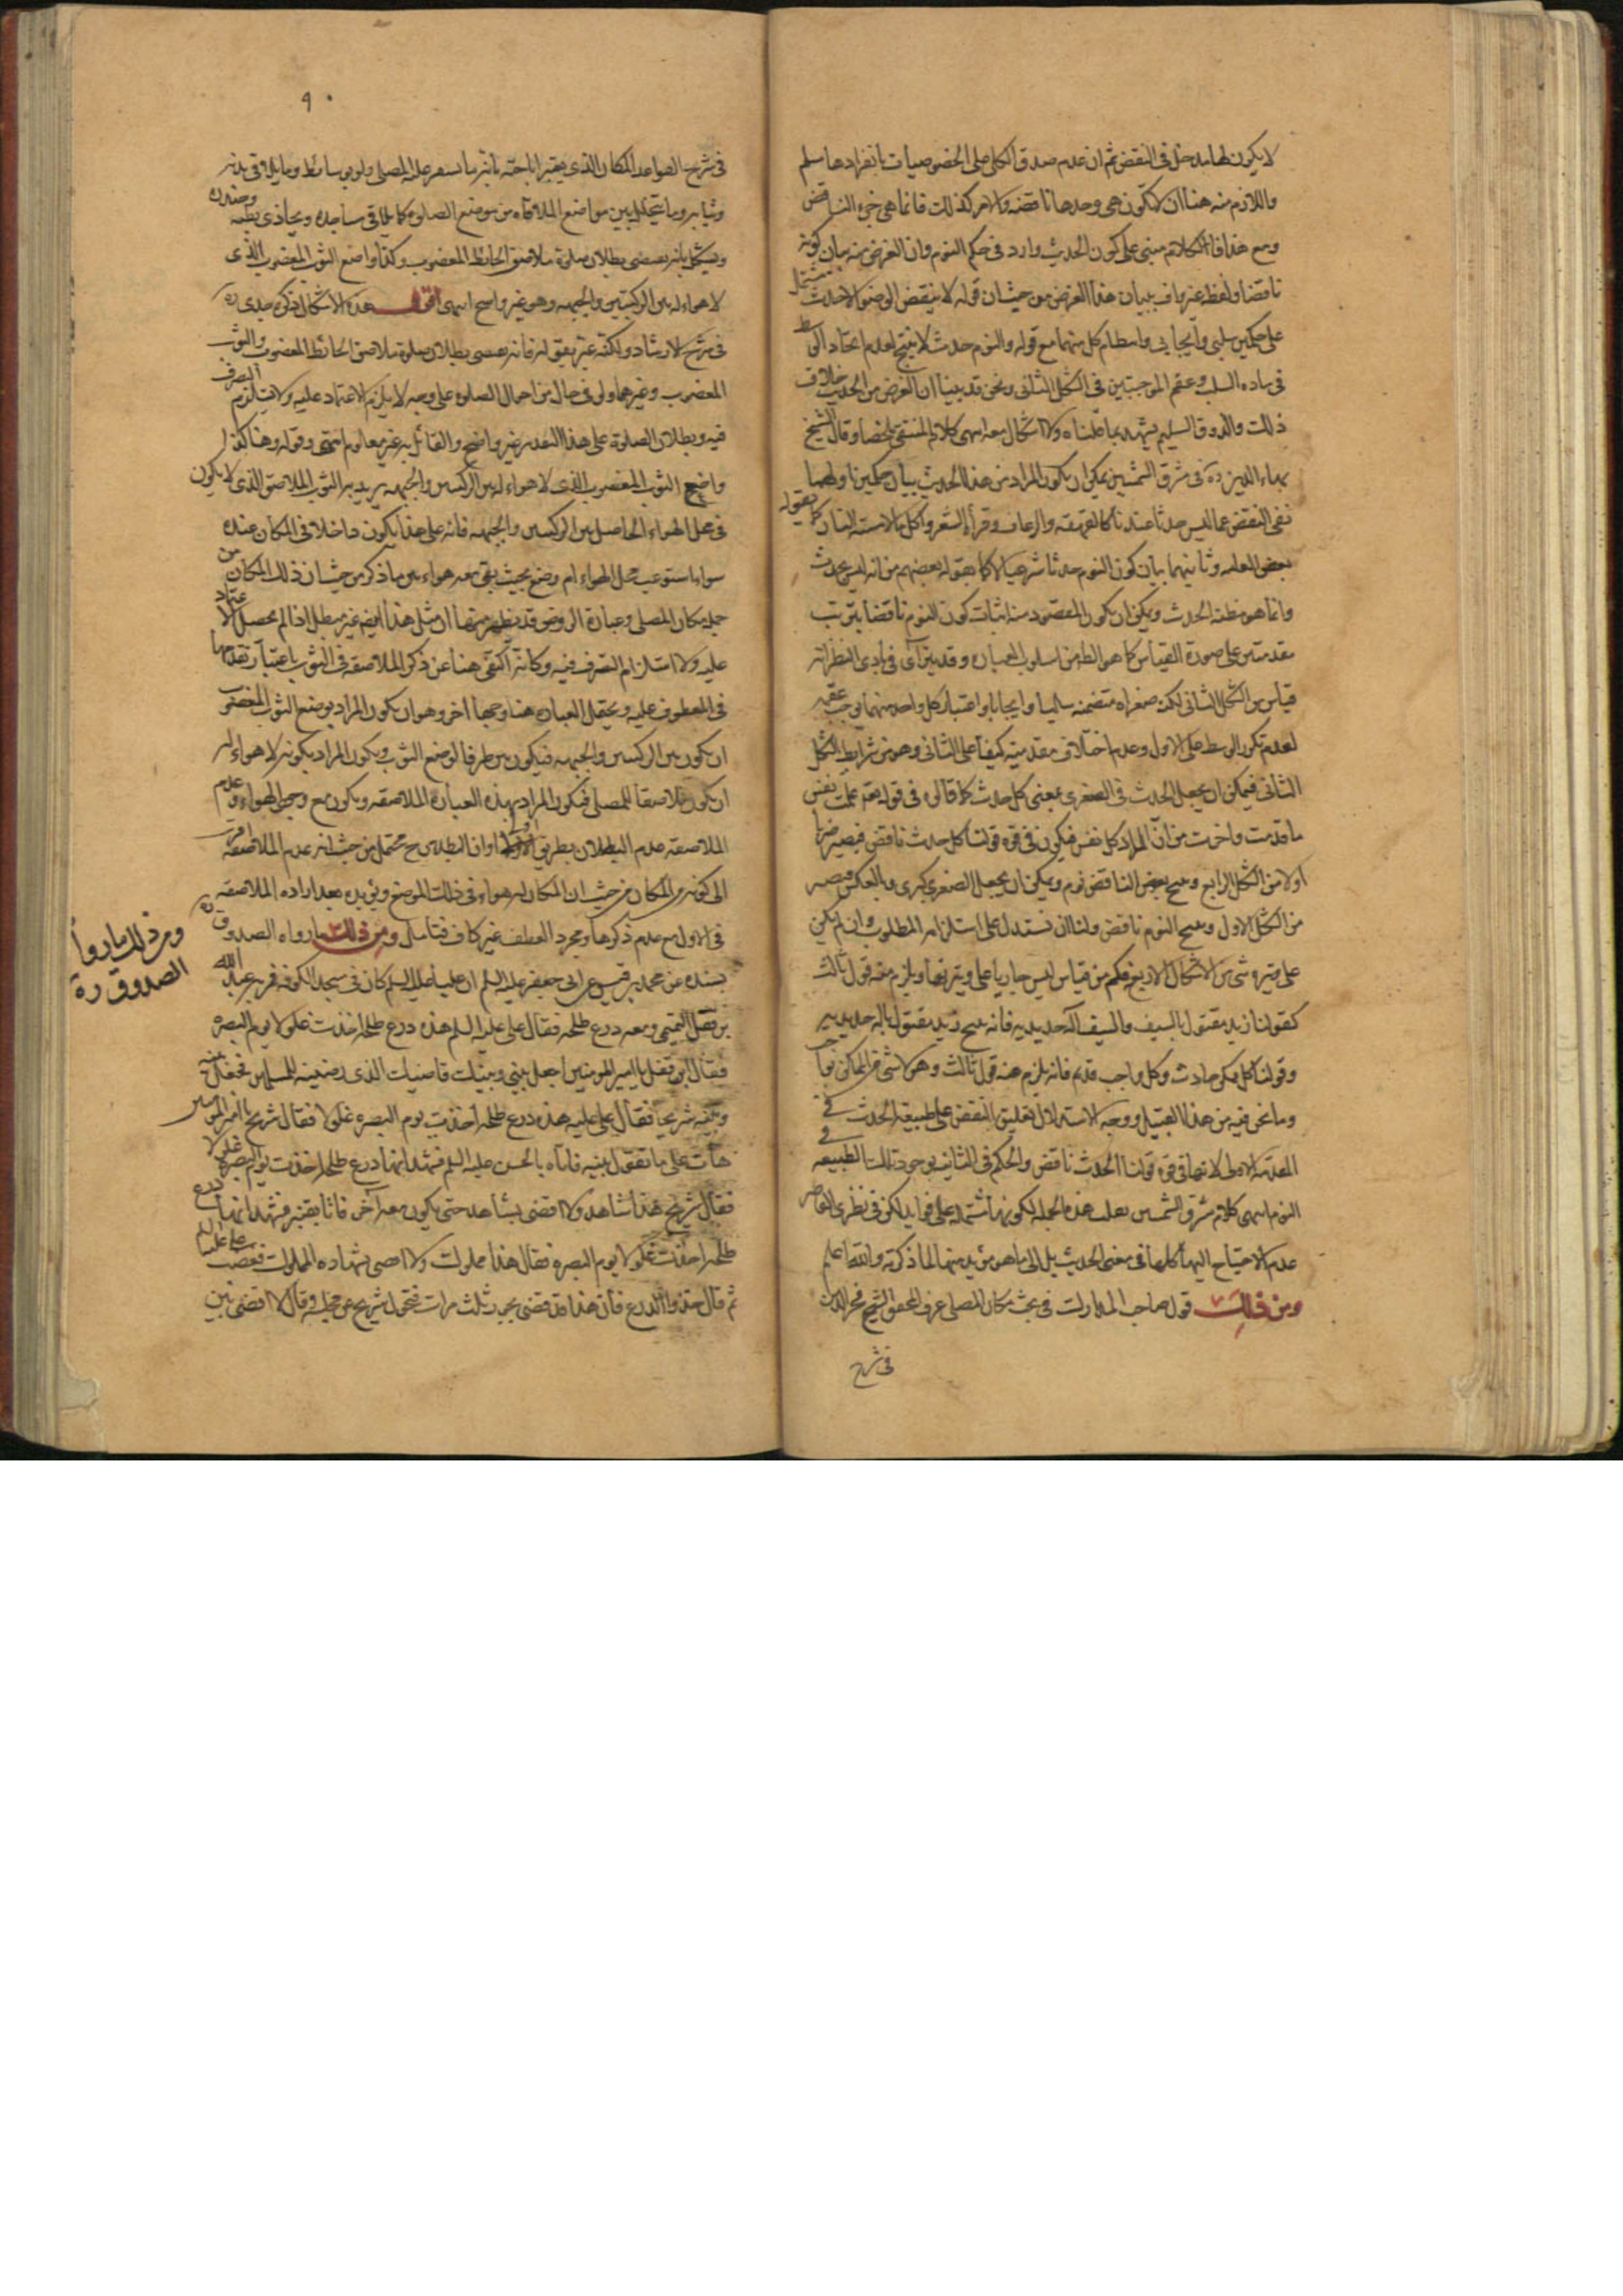 لا يكون لها مدخل في النقض ثم ان عدم صدق الكلي على الخصوصيات بانفرادها مسلم
واللازم منه هنا ان لا تكون هي وحدها ناقضة والامر كذلك فانما هي جزء الناقض
ومع هذا فالكلام مبنى على كون الحديث وارد في حكم النوم وان الغرض منه بيان كونه
ناقضا ولفظه غير واف ببيان هذا الغرض من حيث ان قوله لا ينقض الوضوء الا حدث مشتمل
على حكمين سلبي وايجابي وانتظام كل منهما مع قوله والنوم حدث لا ينتج لعدم اتحاد الوسط
في ماده السلب وعقم الموجبتين في الشكل الثاني ونحن قد بينا ان الغرض من الحديث خلاف
ذلك والذوق السليم يشهد بما قلناه ولا اشكال معه انتهى كلام المنتقى ملخصا وقال الشيخ
بهاء الدين ره في مشرق الشمسين يمكن ان يكون المراد من هذا الحديث بيان حكمين اولهما
نفى النقض عما ليس حدثا عندنا كالقهقهة والرعاف وقراءة الشعر واكل ما لامسته النار كما يقوله
بعض العامه وثانيهما بيان كون النوم حدثا شرعيا لا كما يقوله بعضهم من انه ليس بحدث
وانما هو مظنه الحدث ويمكن ان يكون المقصود منه اثبات كون النوم ناقضا بترتيب
مقدمتين على صورة القياس كما هو الظ من اسلوب العباره وقد يترآى في بادى النظر انه
قياس من الشكل الثاني لكن صغراه متضمنه سالبا وايجابا واعتبار كل واحد منهما يوجب عقمه
لعدم تكرر الوسط على الاول وعدم اختلاف مقدمتيه كيفا على الثاني وهو من شرايط الشكل
الثاني فيمكن ان يجعل الحدث في الصغرى بمعنى كل حدث كما قالوه في قوله تعه علمت نفس
ما قدمت واخرت من ان المراد كل نفس فيكون في قوه قولنا كل حدث ناقض فيصير ضربا
اولا من الشكل الرابع وينتج بعض الناقض نوم ويمكن ان يجعل الصغرى كبرى وبالعكس فيصير
من الشكل الاول وينتج النوم ناقض ولنا ان نستدل على استلزامه المطلوب وان لم يكن
على وتيرة شئ من الاشكال الاربع فكم من قياس ليس جاريا على وتيرتها ويلزم منه قول ثالث
كقولنا زيد مقتول بالسيف والسيف آله حديديه فانه ينتج زيد مقتول باله حديديه
وقولنا كل ممكن حادث وكل واجب قديم فانه يلزم منه قول ثالث وهو لا شئ من الممكن بواجب
وما نحن فيه من هذا القبيل ووجه الاستدلال تعليق النقض على طبيعة الحدث في
المقدمة الاولى لانها في قوه قولنا الحدث ناقض والحكم في الثانيه بوجود تلك الطبيعه في
النوم انتهى كلام مشرق الشمسين نقلت هذه الجمله لكونها مشتمله على فوايد لكن في نظرى القاصر
عدم الاحتياج اليها كلها في معنى الحديث بل الى ما هو مؤيد منها لما ذكرته والله اعلم
ومن ذلك قول صاحب المدارك في بحث مكان المصلى عرف المحقق الشيخ فخر الدين
في شرح
٩٠
في شرح القواعد المكان الذى يعتبر اباحته بانه ما يستقر عليه المصلى ولو بوسائط وما يلاقى بدنه
وثيابه وما يتخلل بين مواضع الملاقاه من موضع الصلوه كما يلاقى مساجده ويحاذى بطنه وصدره
ويشكل بانه يقتضى بطلان صلوة ملاصق الحائط المغصوب وكذا واضع الثوب المغصوب الذى
لا هواء له بين الركبتين والجبهه وهو غير واضح انتهى اقول هذه الاشكال ذكره جدى ره
في شرح الارشاد ولكنه عبر بقوله فانه يقتضى بطلان صلوة ملاصق الحائط المغصوب والثوب
المغصوب وغيرهما ولو في حال من احوال الصلوه على وجه لا يلزم الاعتماد عليه ولا يستلزم التصرف
فيه وبطلان الصلوة على هذا التقدير غير واضح والقائل به غير معلوم انتهى وقوله وهنا كذا
واضع الثوب المغصوب الذى لا هواء له بين الركبتين والجبهه يريد به الثوب الملاصق الذى لا يكون
في محل الهواء الحاصل بين الركبتين والجبهه فانه على هذا يكون داخلا في المكان عنده
سواء استوعب محل الهواء ام وضع بحيث يبقى معه هواء بين ما ذكر من حيث ان ذلك المكان من
جمله مكان المصلى وعبارة الروض قد يظهر منها ان مثل هذا ايضا غير مبطل اذا لم يحصل الاعتماد
عليه ولا استلزام التصرف فيه وكانه اكتفى هنا عن ذكر الملاصقه في الثوب باعتبار تقدمها
في المعطوف عليه ويحتمل العباره هنا وجها آخر وهو ان يكون المراد بوضع الثوب المغصوب
ان يكون بين الركبتين والجبهه فيكون بين ظرفا لوضع الثوب ويكون المراد بكونه لا هواء له
ان يكون ملاصقا للمصلى فيكون المراد بهذه العبارة الملاصقه ويكون مع وجود الهواء وعدم
الملاصقه عدم البطلان بطريق اولى او ان البطلان ح محتمل من حيث انه عدم الملاصقه اقرب
الى كونه من المكان من حيث ان المكان له هواء في ذلك الموضع ويؤيده بعد اراده الملاصقه
في الاول مع عدم ذكرها ومجرد العطف غير كاف فتامل ومن ذلك ما رواه الصدوق ره
بسنده عن محمد بن قيس عن ابى جعفر عليه السلم ان عليا عليه السلم كان في مسجد الكوفه فمر به عبد الله
بن قفل التيمى ومعه درع طلحه فقال على عليه السلم هذه درع طلحه اخذت غلولا يوم البصره
فقال ابن قفل يا امير المومنين اجعل بينى وبينك قاضيك الذى رضيته للمسلمين فجعل بينه
وبينه شريحا فقال على عليه هذه درع طلحه اخذت يوم البصره غلولا فقال شريح يا امير المومنين
هات على ما تقول بينه فاتاه بالحسن عليه السلم فشهد انها درع طلحه اخذت يوم البصره غلولا
فقال شريح هذا شاهد ولا اقضى بشاهد حتى يكون معه آخر فاتا بقنبر فشهد انها درع
طلحه اخذت غلولا يوم البصره فقال هذا مملوك ولا اقضى بشهاده المملوك فغضب على عليه السلم
ثم قال خذوا الدرع فان هذا قد قضى بجور ثلث مرات فتحول شريح عن مجلسه وقال لا اقضى بين
ومن ذلك ما رواه
الصدوق ره